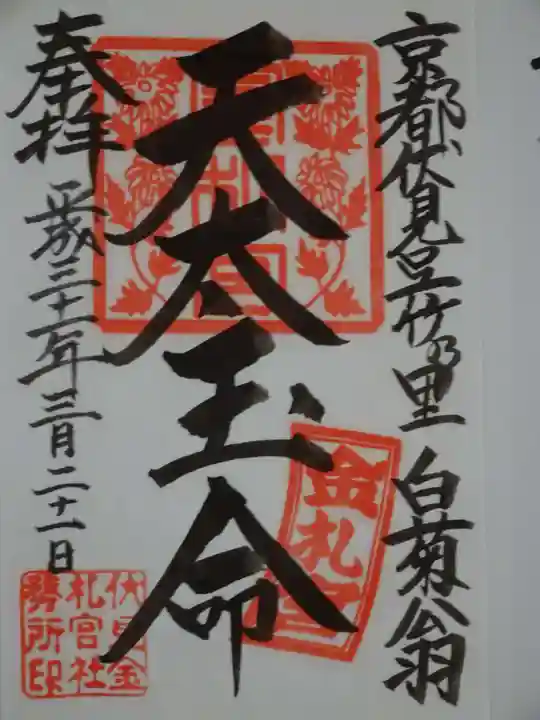 京都伏見呉竹乃里 白菊翁
天太玉命
金札宮
金札宮
奉拝 平成三十一年三月二十一日
伏見金
札宮社
務所印